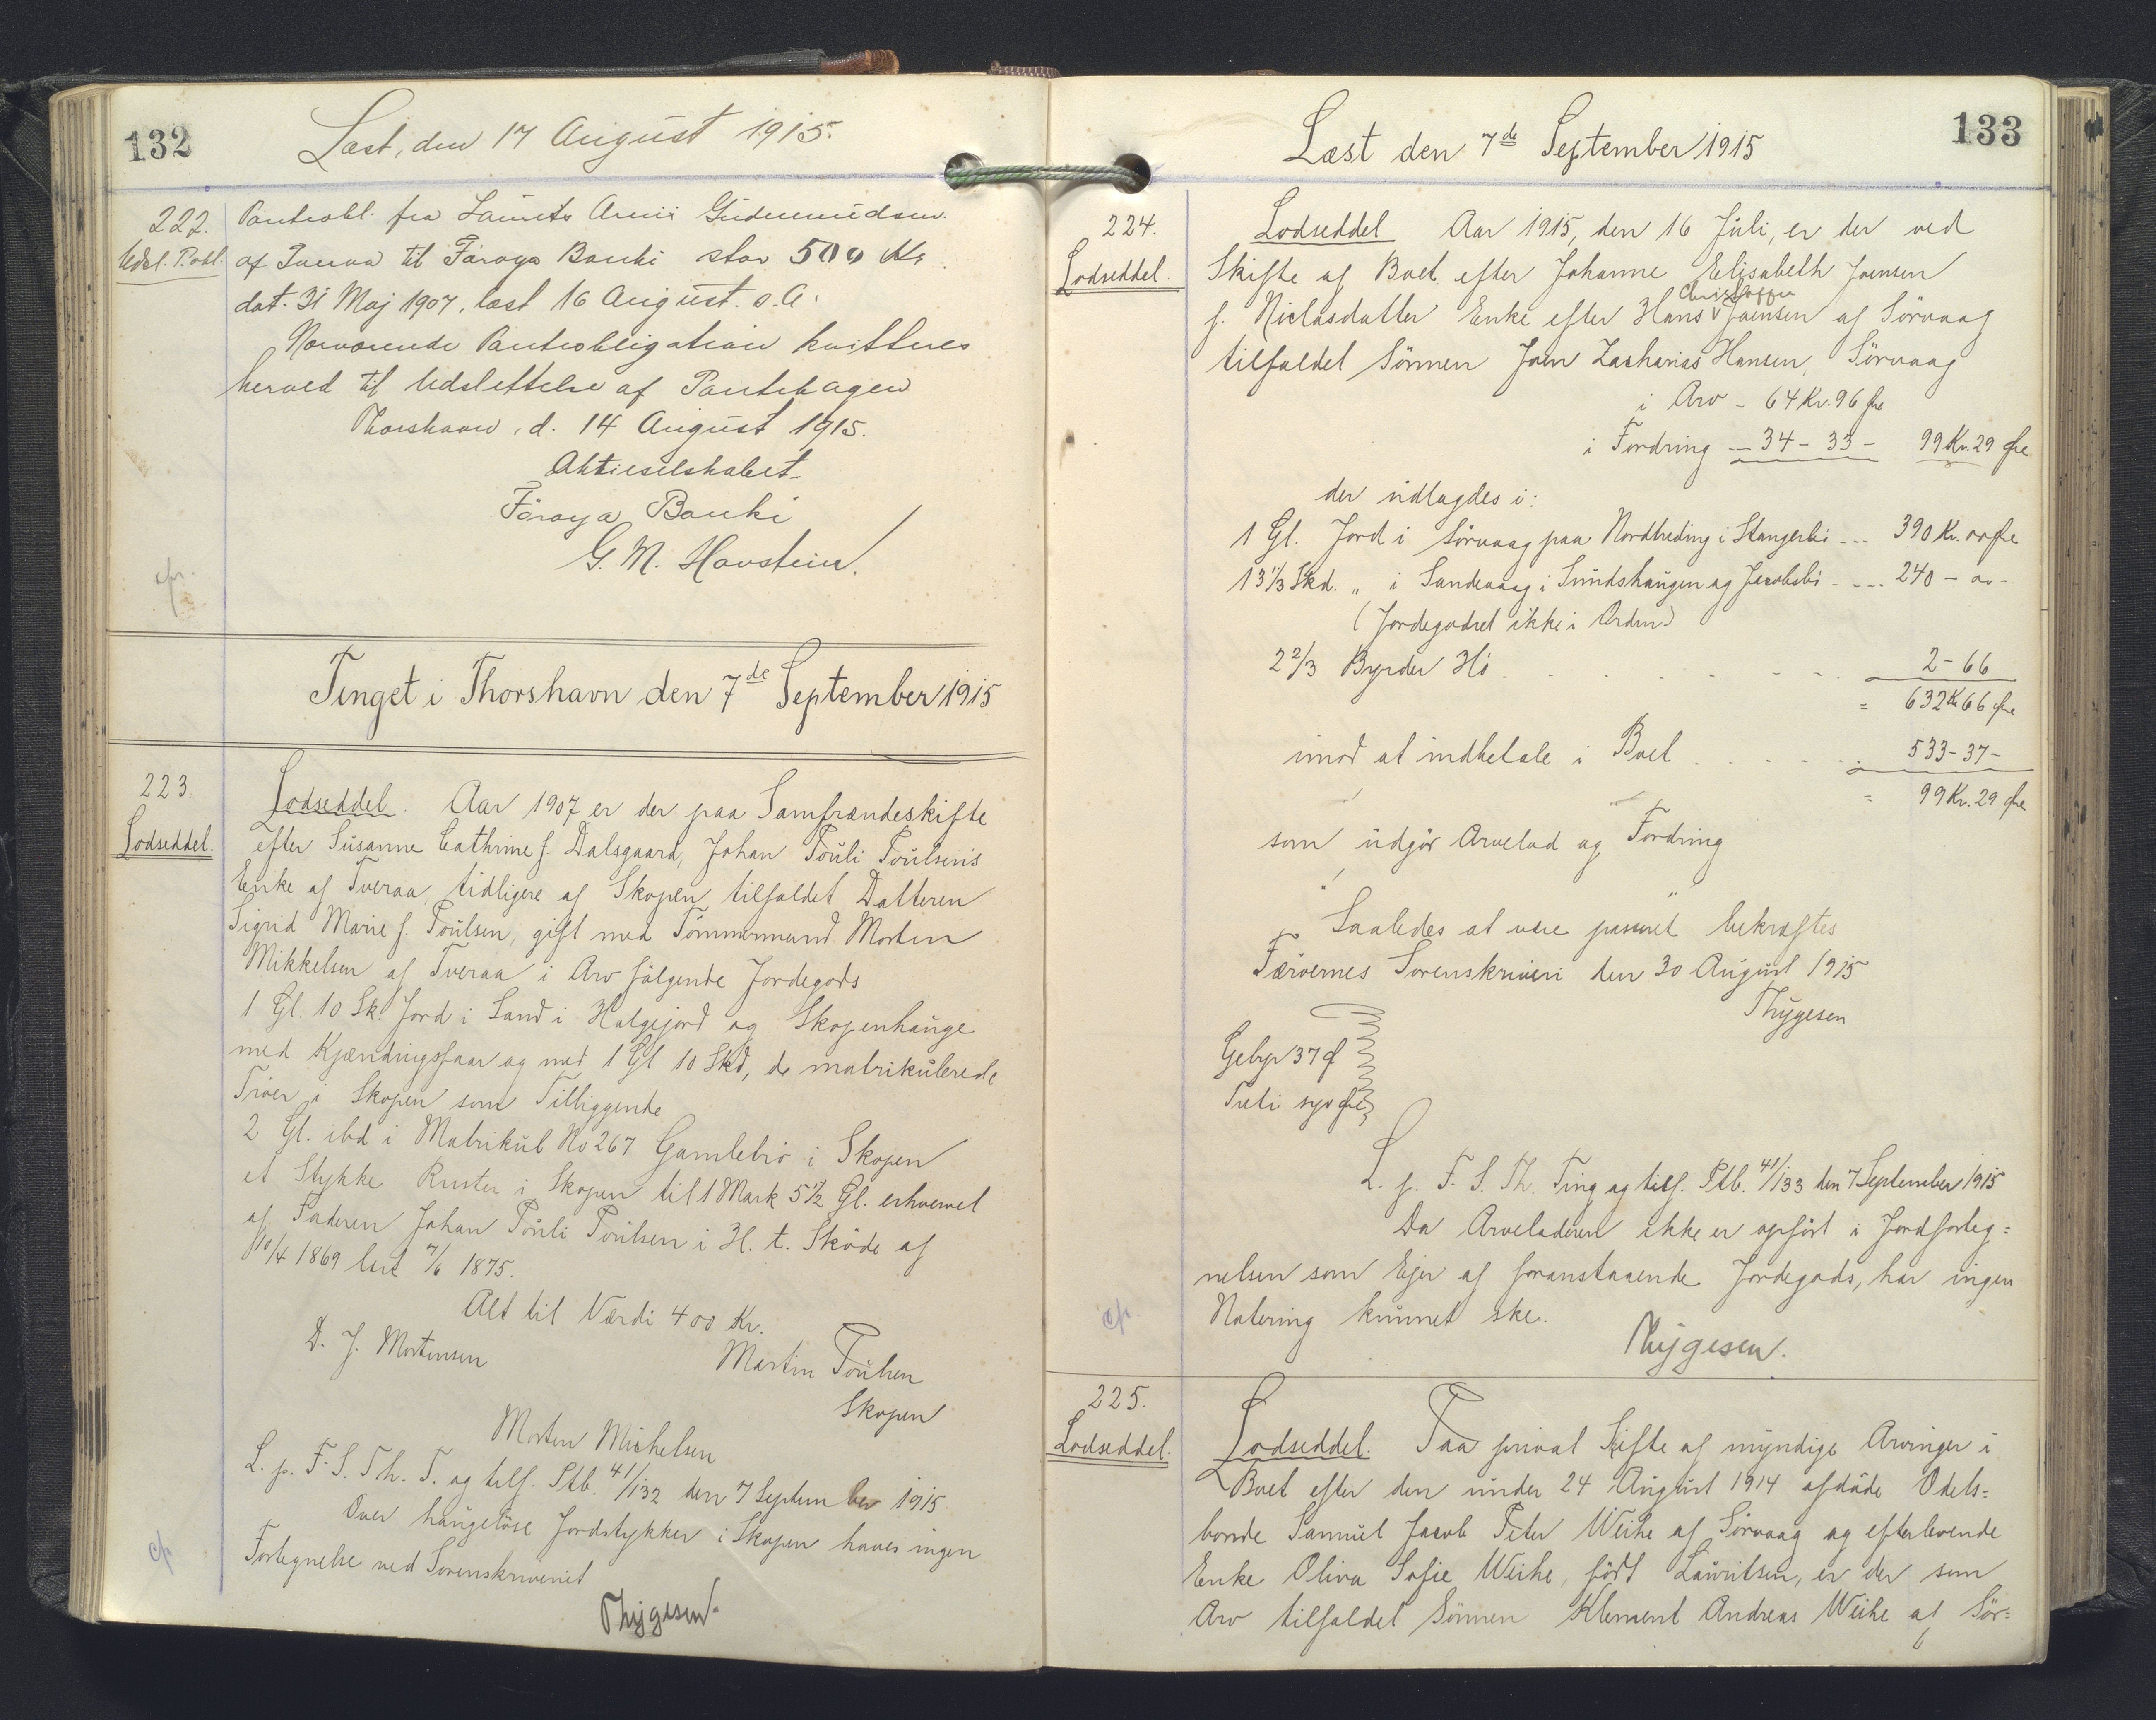 132
Læst, den 17 August 1915.
222.
Udsl. P.obl.
Pantobl. fra Laurits Arnii Gudmundsen
af Tveraa til Føroya Banki stor 500 Kr
dat. 31 Maj 1907, læst 16 August s. A.
Nærværende Panteobligation kvitteres
herved til Udslettelse af Pantebogen
Thorshavn, d. 14 August 1915.
Aktieselskabet
Føroya Banki
G. M. Havstein.
cfr.
Tinget i Thorshavn den 7de September 1915
223.
Lodseddel.
Lodseddel. Aar 1907 er der paa Samfrændeskifte
efter Susanne Cathrine f. Dalsgaard, Johan Pouli Poulsens
Enke af Tveraa, tidligere af Skopen tilfaldet Datteren
Sigrid Marie f. Poulsen, gift med Tömmermand Morten
Mikkelsen af Tveraa i Arv følgende Jordegods
1 Gl. 10 Sk. Jord i Sand i Halgejord og Skopenhauge
med Kjændingsfaar og med 1 Gl 10 Skd, de matrikulerede
Tröer i Skopen som Tilliggende
2 Gl. ibd i Matrikul No 267 Gamlebö i Skopen
et Stykke Ruster i Skopen til 1 Mark 5 1/2 Gl. erhvervet
af Faderen Johan Pouli Poulsen i H. t. Skøde af
10/4 1869 læst 7/6 1875.
Alt til Værdi 400 Kr.
D. J. Mortensen
Martin Poulsen
Skopen
Morten Michelsen
L. p. F. S. Th. T. og tilf. Ptb. 41/132 den 7 September 1915
Over haugeløse Jordstykker i Skopen haves ingen
Fortegnelse ved Sorenskriveriet
Thygesen.
cfr
133
Læst den 7de September 1915
224.
Lodseddel.
Lodseddel Aar 1915, den 16 Juli, er der ved
Skifte af Boet efter Johanne Elisabeth Joensen
Christoffer
f. Niclasdatter Enke efter Hans Joensen af Sörvaag
tilfaldet Sönnen Joen Zacharias Hansen, Sörvaag
i Arv - 64 Kr. 96 Øre
i Fordring - 34 - 33 - 99 Kr. 29 Øre
der udlagdes i:
1 Gl. Jord i Sörvaag paa Nordheding i Stangerbö - - - 390 Kr. 00 Øre
13 1/3 Skd. " i Sandevaag i Sundshaugen og Jacobsbö - - - 240 - 00 -
(Jordegodset ikke i Orden)
2 2/3 Byrder Hö . . . . . . . 2 - 66
= 632 Kr 66 Øre
imod at indbetale i Boet . . . . . 533 - 37 -
= 99 Kr. 29 Øre
som udgör Arvelod og Fordring
Saaledes at være passeret bekræftes
Færøernes Sorenskriveri den 30 August 1915
Thygesen
Gebyr 37 Ø
Treti syv Øre
L. p. F. S. Th. Ting og tilf. Ptb. 41/133 den 7 September 1915
Da Arveladeren ikke er opført i Jordforteg=
nelsen som Ejer af foranstaaende Jordegods, har ingen
Notering kunnet ske.
Thygesen.
cfr.
225.
Lodseddel.
Lodseddel. Paa privat Skifte af myndige Arvinger i
Boet efter den under 24 August 1914 afdøde Odels=
bonde Samuel Jacob Peter Weihe af Sörvaag og efterlevende
Enke Oliva Sofie Weihe, født Lauritsen, er der som
Arv tilfaldet Sönnen Klement Andreas Weihe af Sör=